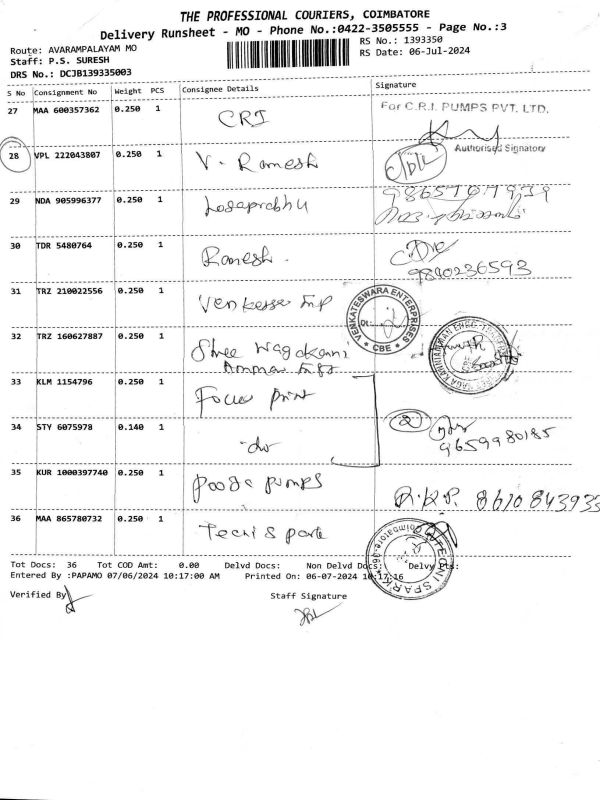 THE PROFESSIONAL COURIERS, COIMBATORE
Delivery Runsheet - MO - Phone No.:0422-3505555 - Page No.:3
Route: AVARAMPALAYAM MO
RS No.: 1393350
Staff: P.S. SURESH
RS Date: 06-Jul-2024
DRS No.: DCJB139335003
S No Consignment No Weight PCS Consignee Details Signature
27 MAA 600357362 0.250 1 CRI
For C.R.I. PUMPS PVT. LTD.
Authorised Signatory
28 VPL 222043807 0.250 1 V. Ramesh
29 NDA 905996377 0.250 1
30 TDR 5480764 0.250 1 Ramesh.
9840236593
31 TRZ 210022556 0.250 1
VENKATESWARA ENTERPRISES
CBE
32 TRZ 160627887 0.250 1 Shree
33 KLM 1154796 0.250 1 Focus Print
34 STY 6075978 0.140 1 -do
2
9659980185
35 KUR 1000397740 0.250 1 Pooja pumps
R.K.P. 8610843933
36 MAA 865780732 0.250 1
TECNI SPARK
Tot Docs: 36 Tot COD Amt: 0.00 Delvd Docs: Non Delvd Docs: Delvy Pts:
Entered By :PAPAMO 07/06/2024 10:17:00 AM Printed On: 06-07-2024 10:17:16
Verified By
Staff Signature